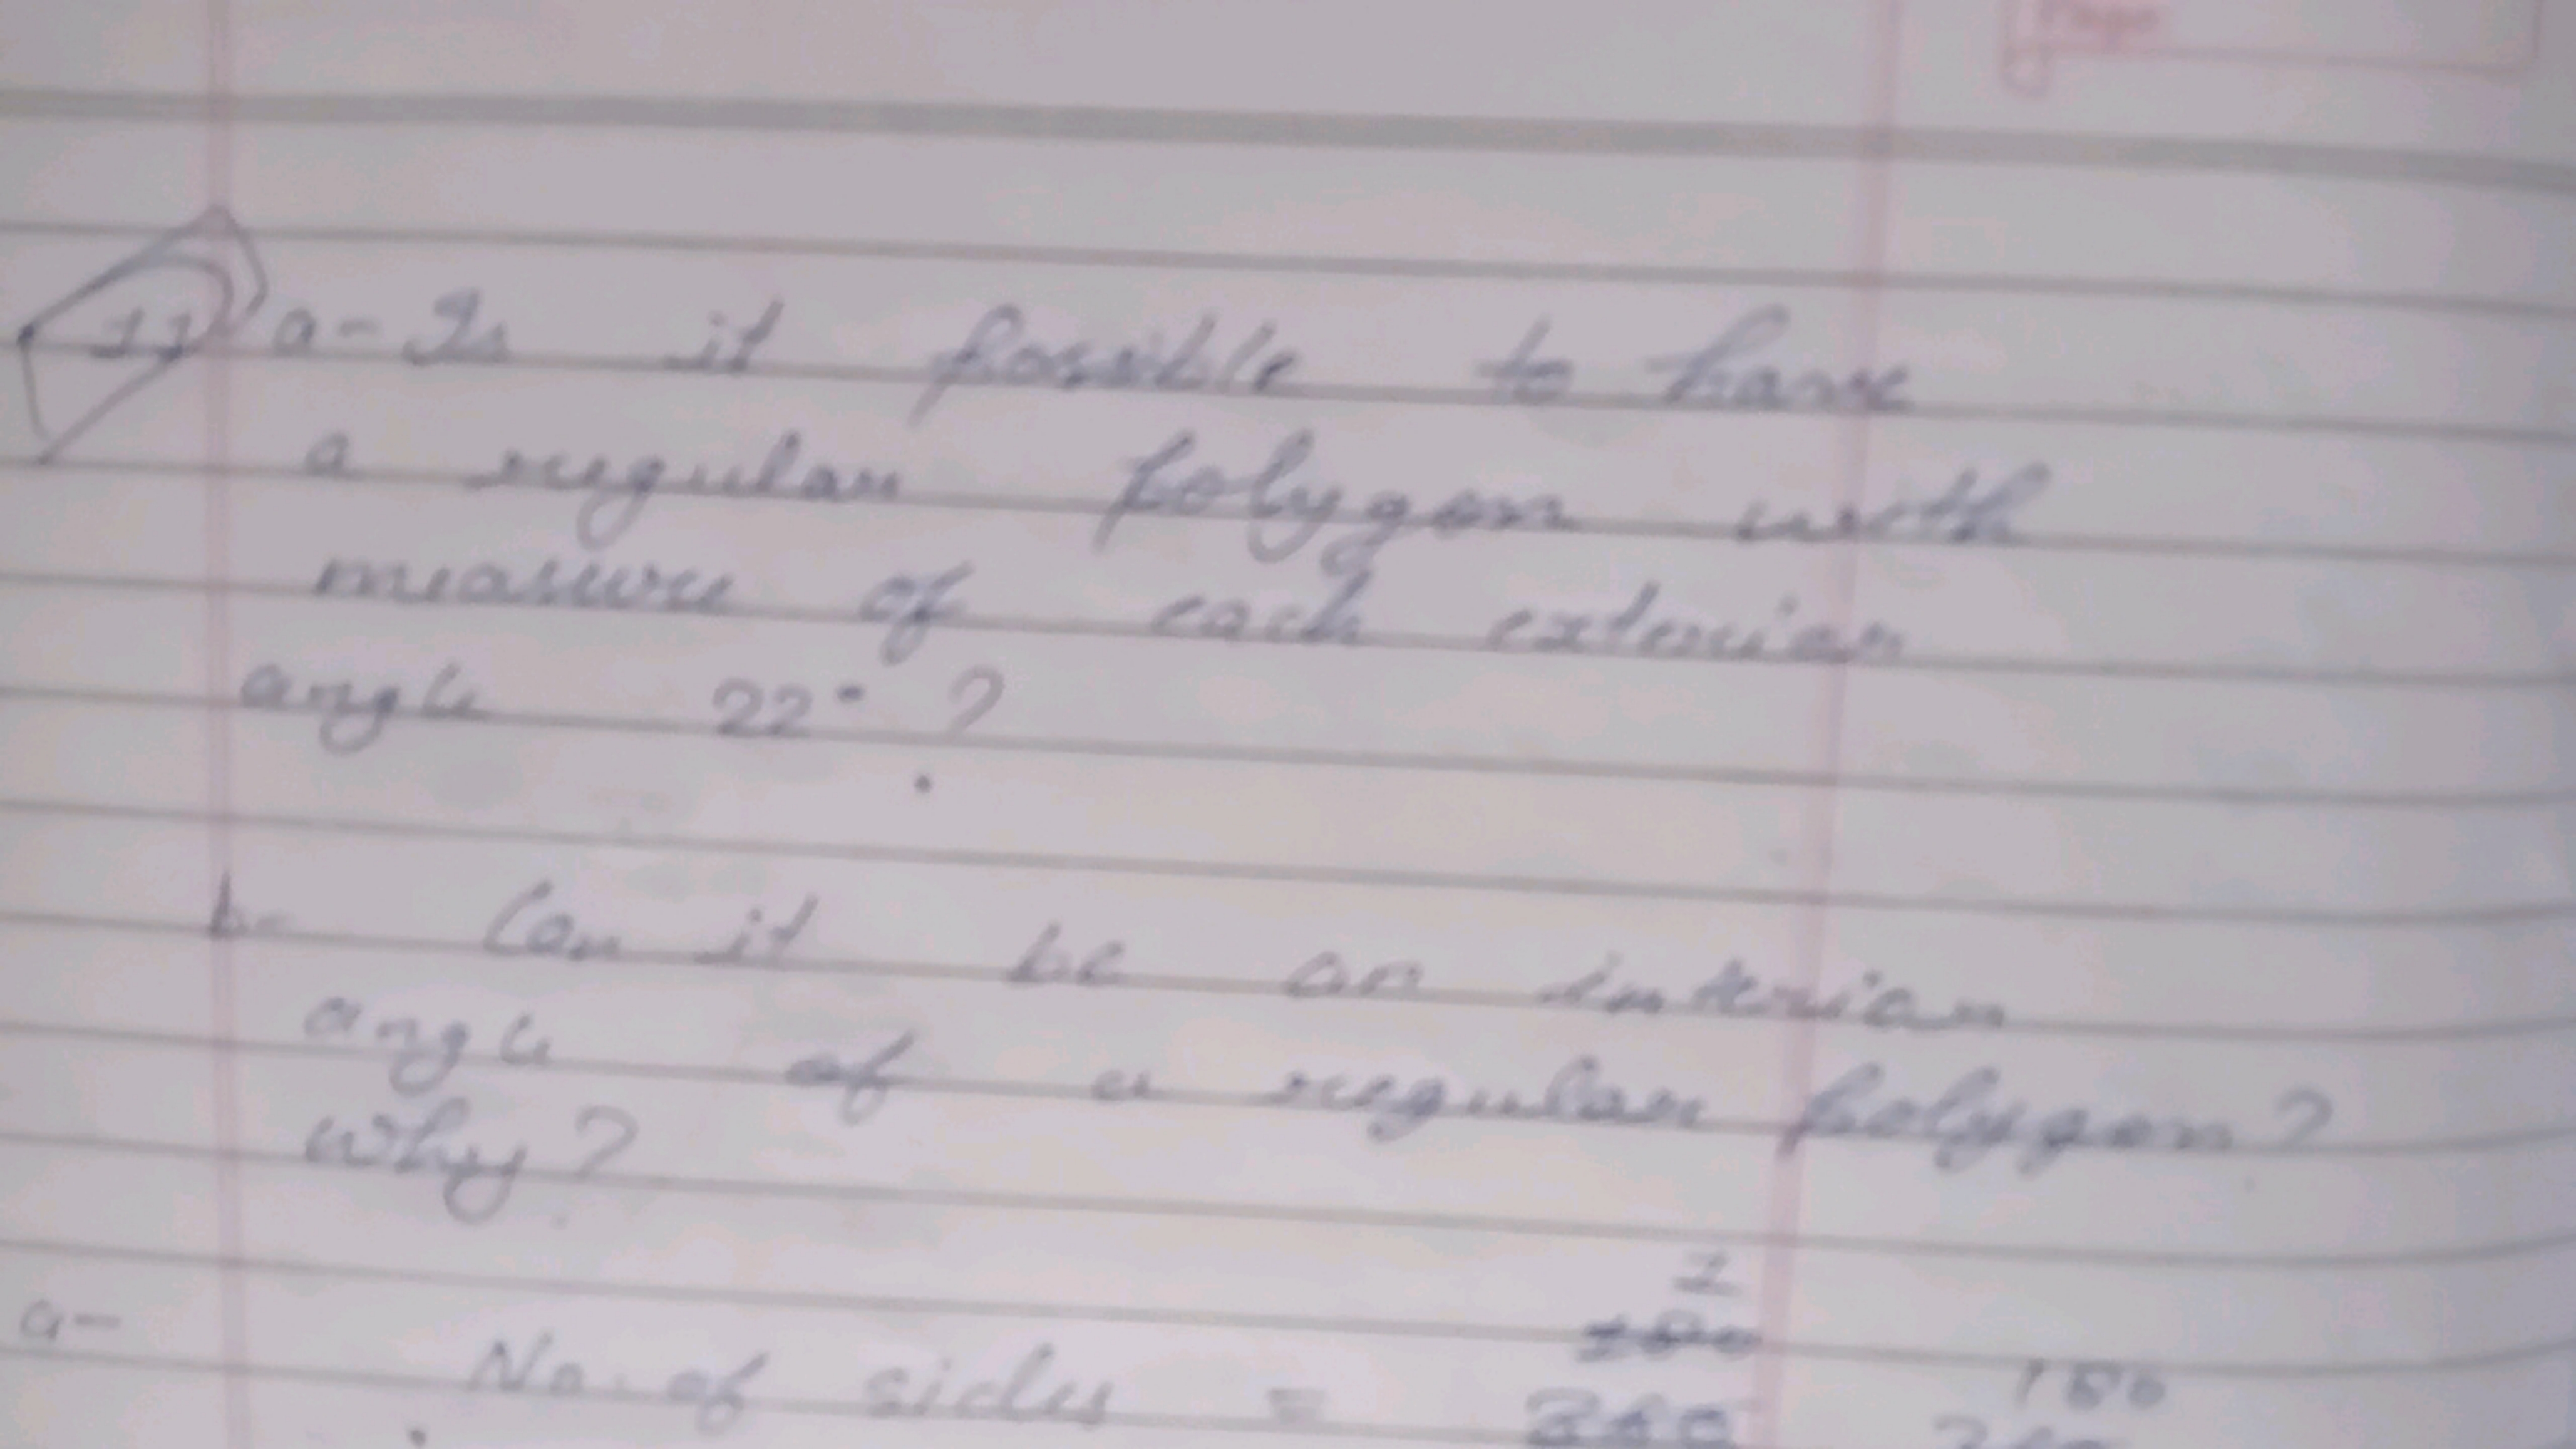 Page
11) a- Is it possible to have
a regular polygon with
measure of each exterior
angle 22° ?
b- Can it be an interior
angle of a regular polygon?
why?
1
a- No. of sides = 360 180